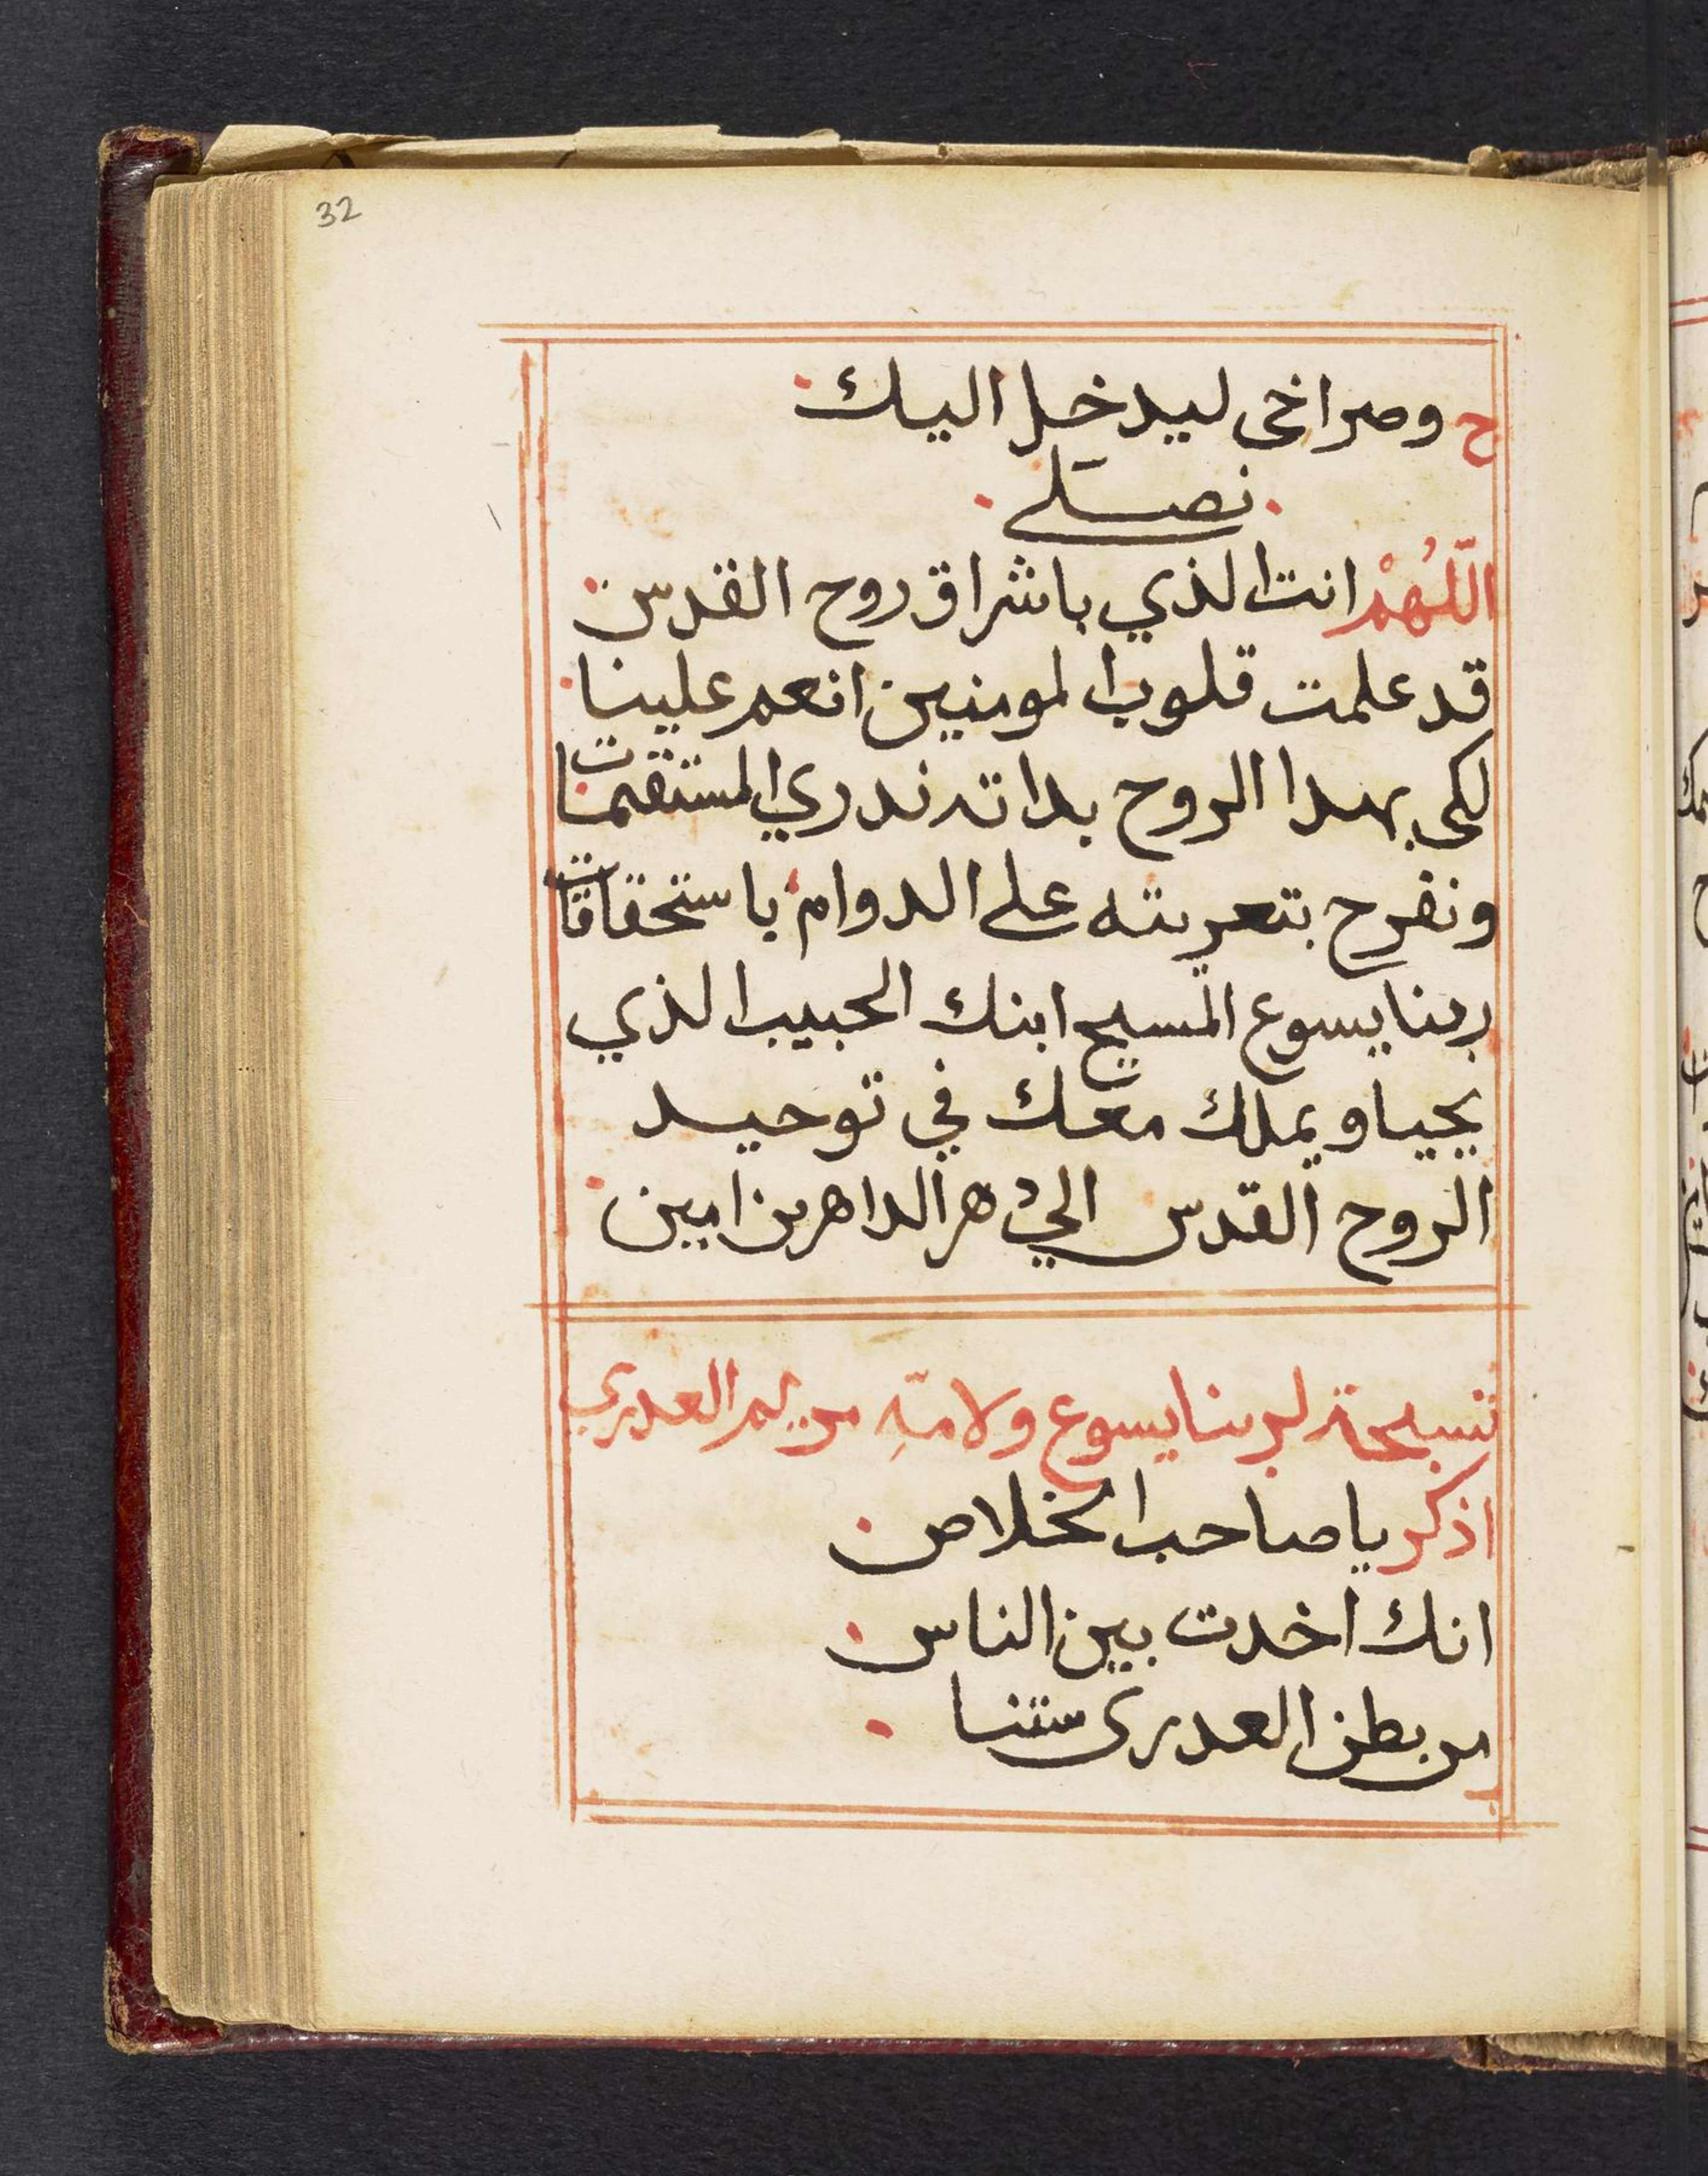 32
ح وصراخي ليدخل اليك
نصلي
اللّهُمْ انت الذي باشراق روح القدس
قد علمت قلوب المومنين انعم علينا
لكي بهدا الروح بداته ندري المستقيمات
ونفرح بتعزيته على الدوام باستحقاقات
ربنا يسوع المسيح ابنك الحبيب الذي
يحيا ويملك معك في توحيد
الروح القدس الي دهر الداهرين امين
تسبحة لربنا يسوع ولامّهِ مريم العدري
اذكر يا صاحب الخلاص
انك اخدت بين الناس
من بطن العدرى سننا